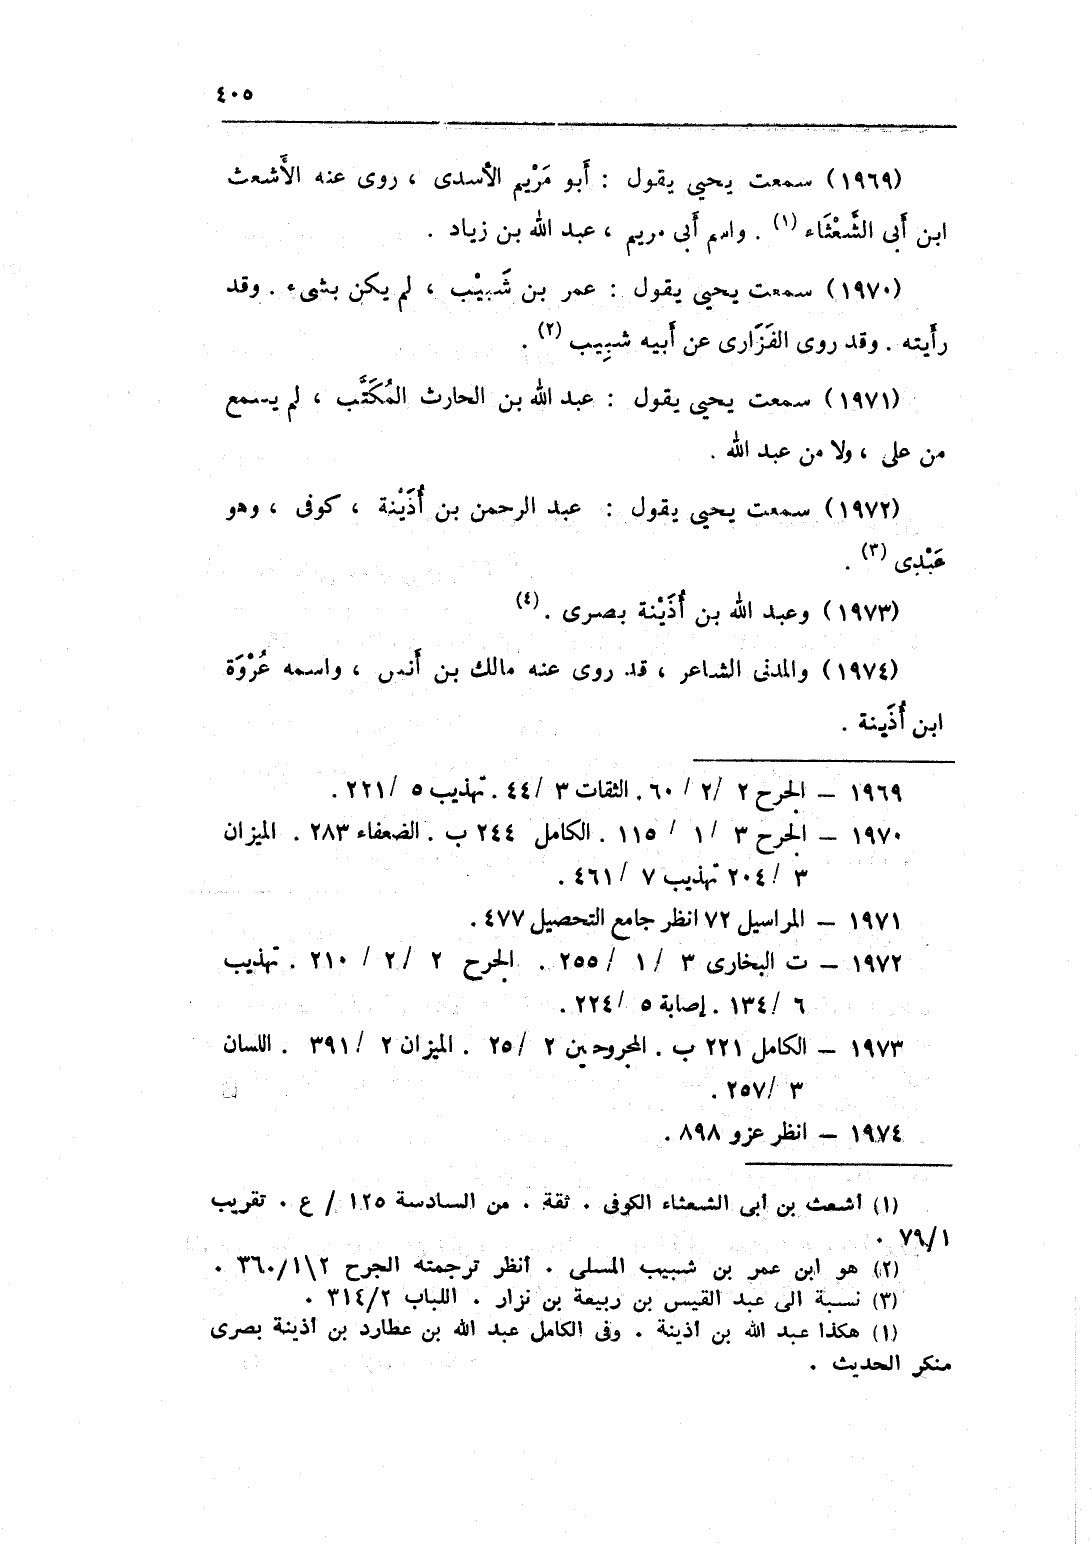 ٤٠٥
(١٩٦٩) سمعت يحيى يقول : أَبو مَرْيم الأَسدى ، روى عنه الأَشعث
ابن أَبى الشَّعْثَاء (١) . واسم أَبى مريم ، عبد الله بن زياد .
(١٩٧٠) سمعت يحيى يقول : عمر بن شَبيْب ، لم يكن بشىء . وقد
رأَيته . وقد روى الفَزَارى عن أَبيه شبِيب (٢) .
(١٩٧١) سمعت يحيى يقول : عبد الله بن الحارث المُكَتَّب ، لم يسمع
من على ، ولا من عبد الله .
(١٩٧٢) سمعت يحيى يقول : عبد الرحمن بن أُذَيْنة ، كوفى ، وهو
عَبْدِى (٣) .
(١٩٧٣) وعبد الله بن أُذَيْنة بصرى . (٤)
(١٩٧٤) والمدنى الشاعر ، قد روى عنه مالك بن أَنس ، واسمه عُرْوَة
ابن أُذَينة .
١٩٦٩ – الجرح ٢ /٢ / ٦٠. الثقات ٣ /٤٤. تهذيب ٥ /٢٢١.
١٩٧٠ – الجرح ٣ /١ / ١١٥ . الكامل ٢٤٤ ب . الضعفاء ٢٨٣ . الميزان
٣ /٢٠٤ تهذيب ٧ / ٤٦١.
١٩٧١ – المراسيل ٧٢ انظر جامع التحصيل ٤٧٧.
١٩٧٢ – ت البخارى ٣ /١ / ٢٥٥ . الجرح ٢ /٢ / ٢١٠ . تهذيب
٦ /١٣٤ . إصابة ٥ /٢٢٤ .
١٩٧٣ – الكامل ٢٢١ ب . المجروحين ٢ /٢٥ . الميزان ٢ /٣٩١ . اللسان
٣ /٢٥٧ .
١٩٧٤ – انظر عزو ٨٩٨ .
(١) أشعث بن أبى الشعثاء الكوفى . ثقة . من السادسة ١٢٥ / ع . تقريب
٧٩/١ .
(٢) هو ابن عمر بن شبيب المسلى . أنظر ترجمته الجرح ٢\٣٦٠/١ .
(٣) نسبة الى عبد القيس بن ربيعة بن نزار . اللباب ٣١٤/٢ .
(١) هكذا عبد الله بن أذينة . وفى الكامل عبد الله بن عطارد بن أذينة بصرى
منكر الحديث .